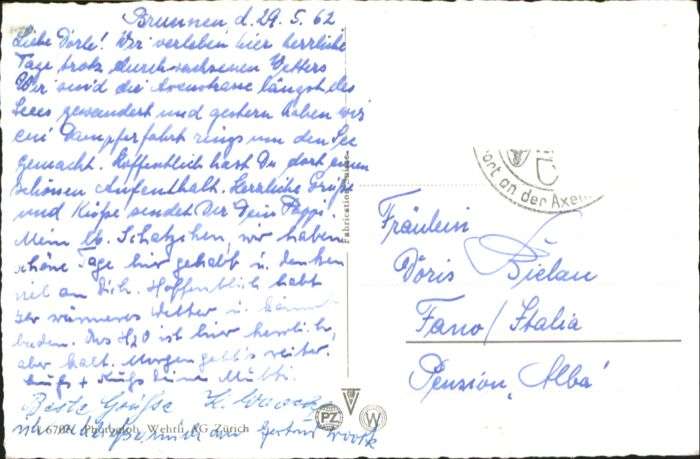 Brunnen d. 29. 5. 62
Liebe Dorle! Wir verleben hier herrliche
Tage trotz durchwachsenen Wetters
Wir sind die Axenstrasse längst des
Sees gewandert und gestern haben wir
ein Dampferfahrt rings um den See
gemacht. Hoffentlich hast Du dort einen
schönen Aufenthalt. Herzliche Grüße
und Küße sendet Dir Dein Pappi.
Mein lb. Schatzchen, wir haben
schöne Tage hier gehabt u. denken
viel an Dich. Hoffentlich habt
Ihr wärmeres Wetter u. könnt
baden. Das H2O ist hier herrlich,
aber kalt. Morgen geht's weiter.
Deine Mutti.
Beste Grüße
Gertrud
Photograph. Wehrli AG Zürich
Fabrication Suisse
PZ
W
ort an der Axen
Fräulein
Doris Bielau
Fano / Italia
Penzion „Alba"